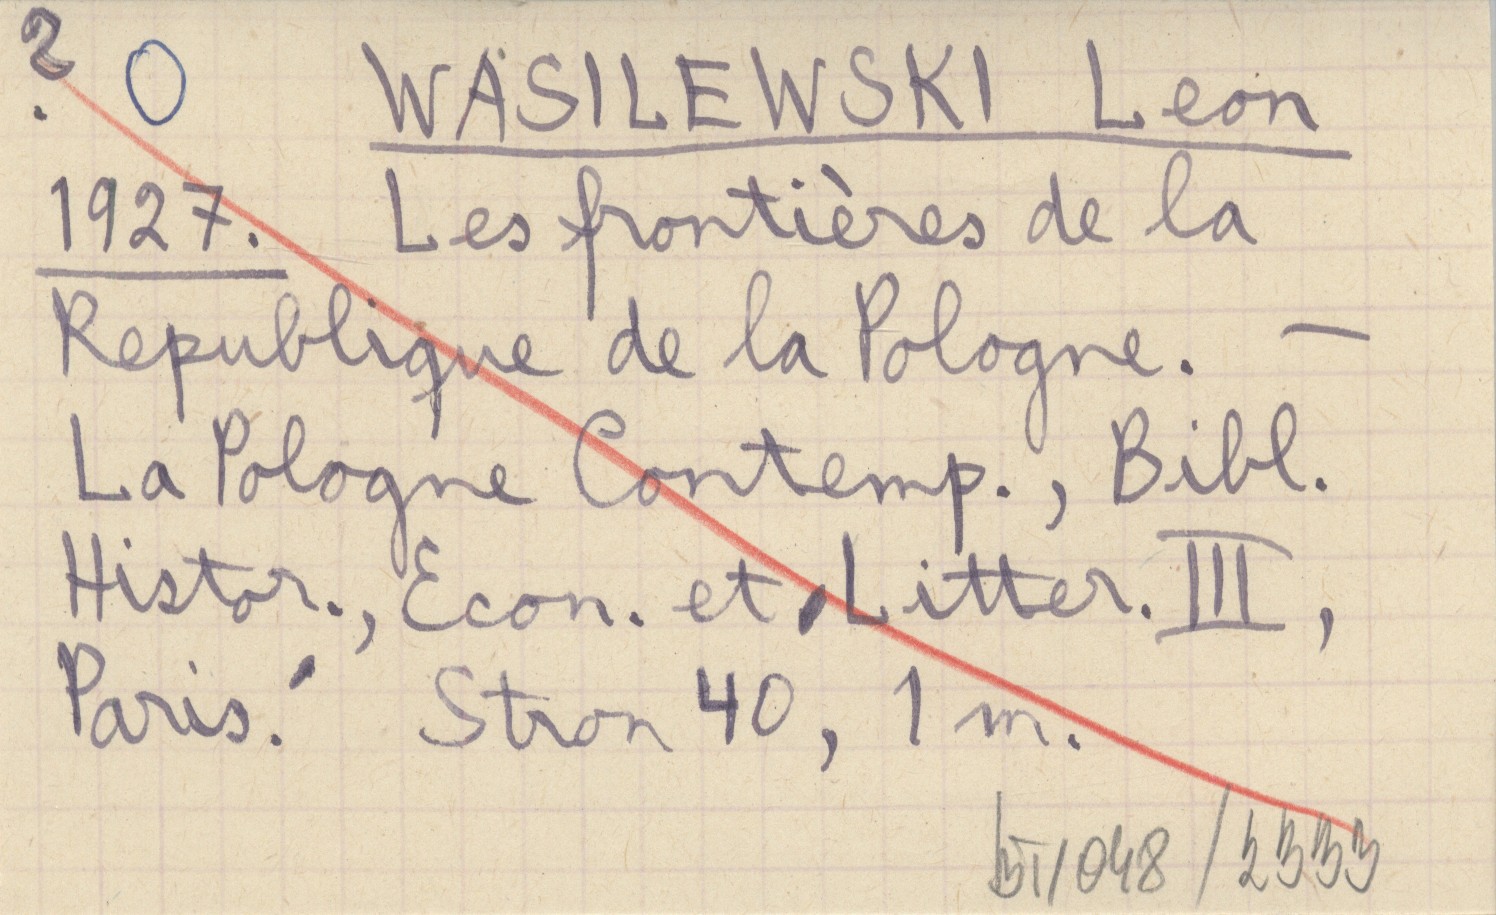 ? O WASILEWSKI Leon
1927. Les frontières de la
Republique de la Pologne. —
La Pologne Contemp., Bibl.
Histor., Econ. et Litter. III,
Paris. Stron 40, 1 m.
/048 / 2333